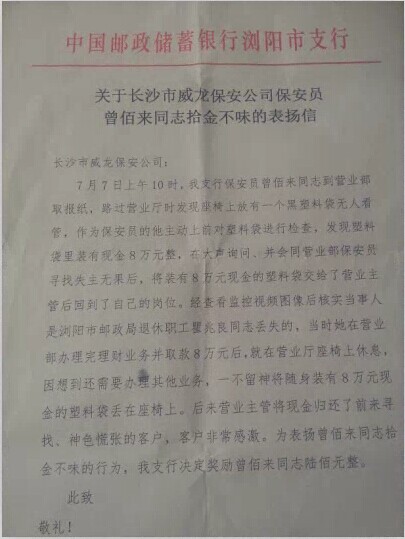 中国邮政储蓄银行浏阳市支行
关于长沙市威龙保安公司保安员
曾佰来同志拾金不味的表扬信
长沙市威龙保安公司：
7月7日上午10时，我支行保安员曾佰来同志到营业部
取报纸，路过营业厅时发现座椅上放有一个黑塑料袋无人看
管，作为保安员的他主动上前对塑料袋进行检查，发现塑料
袋里装有现金8万元整，在大声询问、并会同营业部保安员
寻找失主无果后，将装有8万元现金的塑料袋交给了营业主
管后回到了自己的岗位。经查看监控视频图像后核实当事人
是浏阳市邮政局退休职工瞿兆良同志丢失的，当时她在营业
部办理完理财业务并取款8万元后，就在营业厅座椅上休息，
因想到还需要办理其他业务，一不留神将随身装有8万元现
金的塑料袋丢在座椅上。后来营业主管将现金归还了前来寻
找、神色慌张的客户，客户非常感激。为表扬曾佰来同志拾
金不味的行为，我支行决定奖励曾佰来同志陆佰元整。
此致
敬礼！